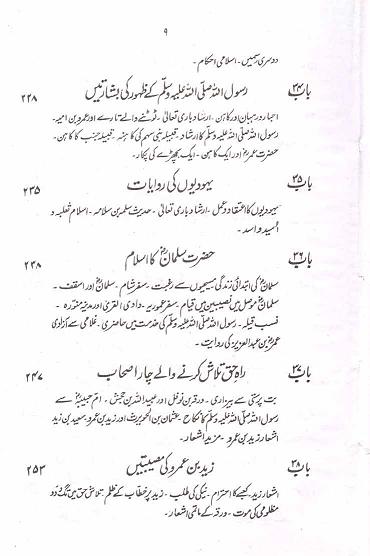 ۹
دوسری رسمیں ۔ اسلامی احکام ۔
باب ۳۴ رسول اللہ صلی اللہ علیہ وسلّم کے ظہور کی بشارتیں ۲۲۸
احبار ورہبان اور کاہن ۔ ارشاد باری تعالیٰ ۔ ٹوٹنے والے تارے اور عمرو بن امیہ ۔
رسول اللہ صلی اللہ علیہ وسلّم کا ارشاد ۔ قبیلہ بنی سہم کی کاہنہ ۔ قبیلہ جنب کا کاہن ۔
حضرت عمرؓ اور ایک کاہن ۔ ایک بچھڑے کی پکار ۔
باب ۳۵ یہودیوں کی روایات ۲۳۵
یہودیوں کا اعتقاد و عمل ۔ ارشاد باری تعالیٰ ۔ حدیث سلمہ بن سلامہ ۔ اسلام ثعلبہ و
اُسید و اسد ۔
باب ۳۶ حضرت سلمانؓ کا اسلام ۲۳۸
سلمانؓ کی ابتدائی زندگی مسیحیوں سے رغبت ۔ سفر شام ۔ سلمانؓ اور اسقف ۔
سلمانؓ موصل میں نصیبین میں قیام ۔ سفر عموریہ ۔ وادی القریٰ اور مدینہ منورہ ۔
نسب قیلہ ۔ رسول اللہ صلی اللہ علیہ وسلّم کی خدمت میں حاضری ۔ غلامی سے آزادی
عمرؒ بن عبدالعزیز کی روایت ۔
باب ۳۷ راہِ حق تلاش کرنے والے چار اصحاب ۲۴۷
بت پرستی سے بیزاری ۔ ورقہ بن نوفل اور عبیداللہ بن جحش ۔ امّ حبیبہؓ سے
رسول اللہ صلی اللہ علیہ وسلّم کا نکاح ۔ عثمان بن الحویرث اور زید بن عمرو ۔ سعید بن زید
اشعار زید بن عمرو ۔ مزید اشعار ۔
باب ۳۸ زید بن عمرو کی مصیبتیں ۲۵۳
اشعار زید ۔ کعبے کا احترام ۔ نیکی کی طلب ۔ زید پر خطاب کے ظلم ۔ تلاش حق میں تگ و دو
مظلومی کی موت ۔ ورقہ کے ماتمی اشعار ۔